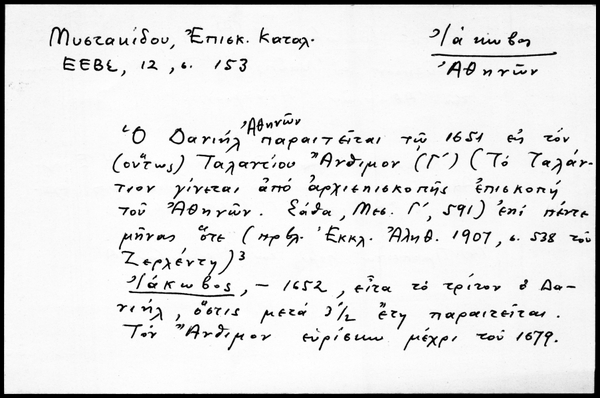 Μυστακίδου, Ἐπισκ. Καταλ.
ΕΕΒΣ, 12, σ. 153
Ἰάκωβος
Ἀθηνῶν
Ὁ Δανιήλ Ἀθηνῶν παραιτεῖται τῷ 1651 εἰς τόν
(οὕτως) Ταλαντίου Ἄνθιμον (Γ΄) (Τό Ταλάν-
τιον γίνεται ἀπό ἀρχιεπισκοπῆς ἐπισκοπή
τοῦ Ἀθηνῶν. Σάθα, Μεσ. Γ΄, 591) ἐπί πέντε
μῆνας ὅτε (πρβλ. Ἐκκλ. Ἀληθ. 1907, σ. 538 τοῦ
Ζερλέντη)³
Ἰάκωβος, – 1652, εἶτα τό τρίτον ὁ Δα-
νιήλ, ὅστις μετά 3/2 ἔτη παραιτεῖται.
Τόν Ἄνθιμον εὑρίσκω μέχρι τοῦ 1679.